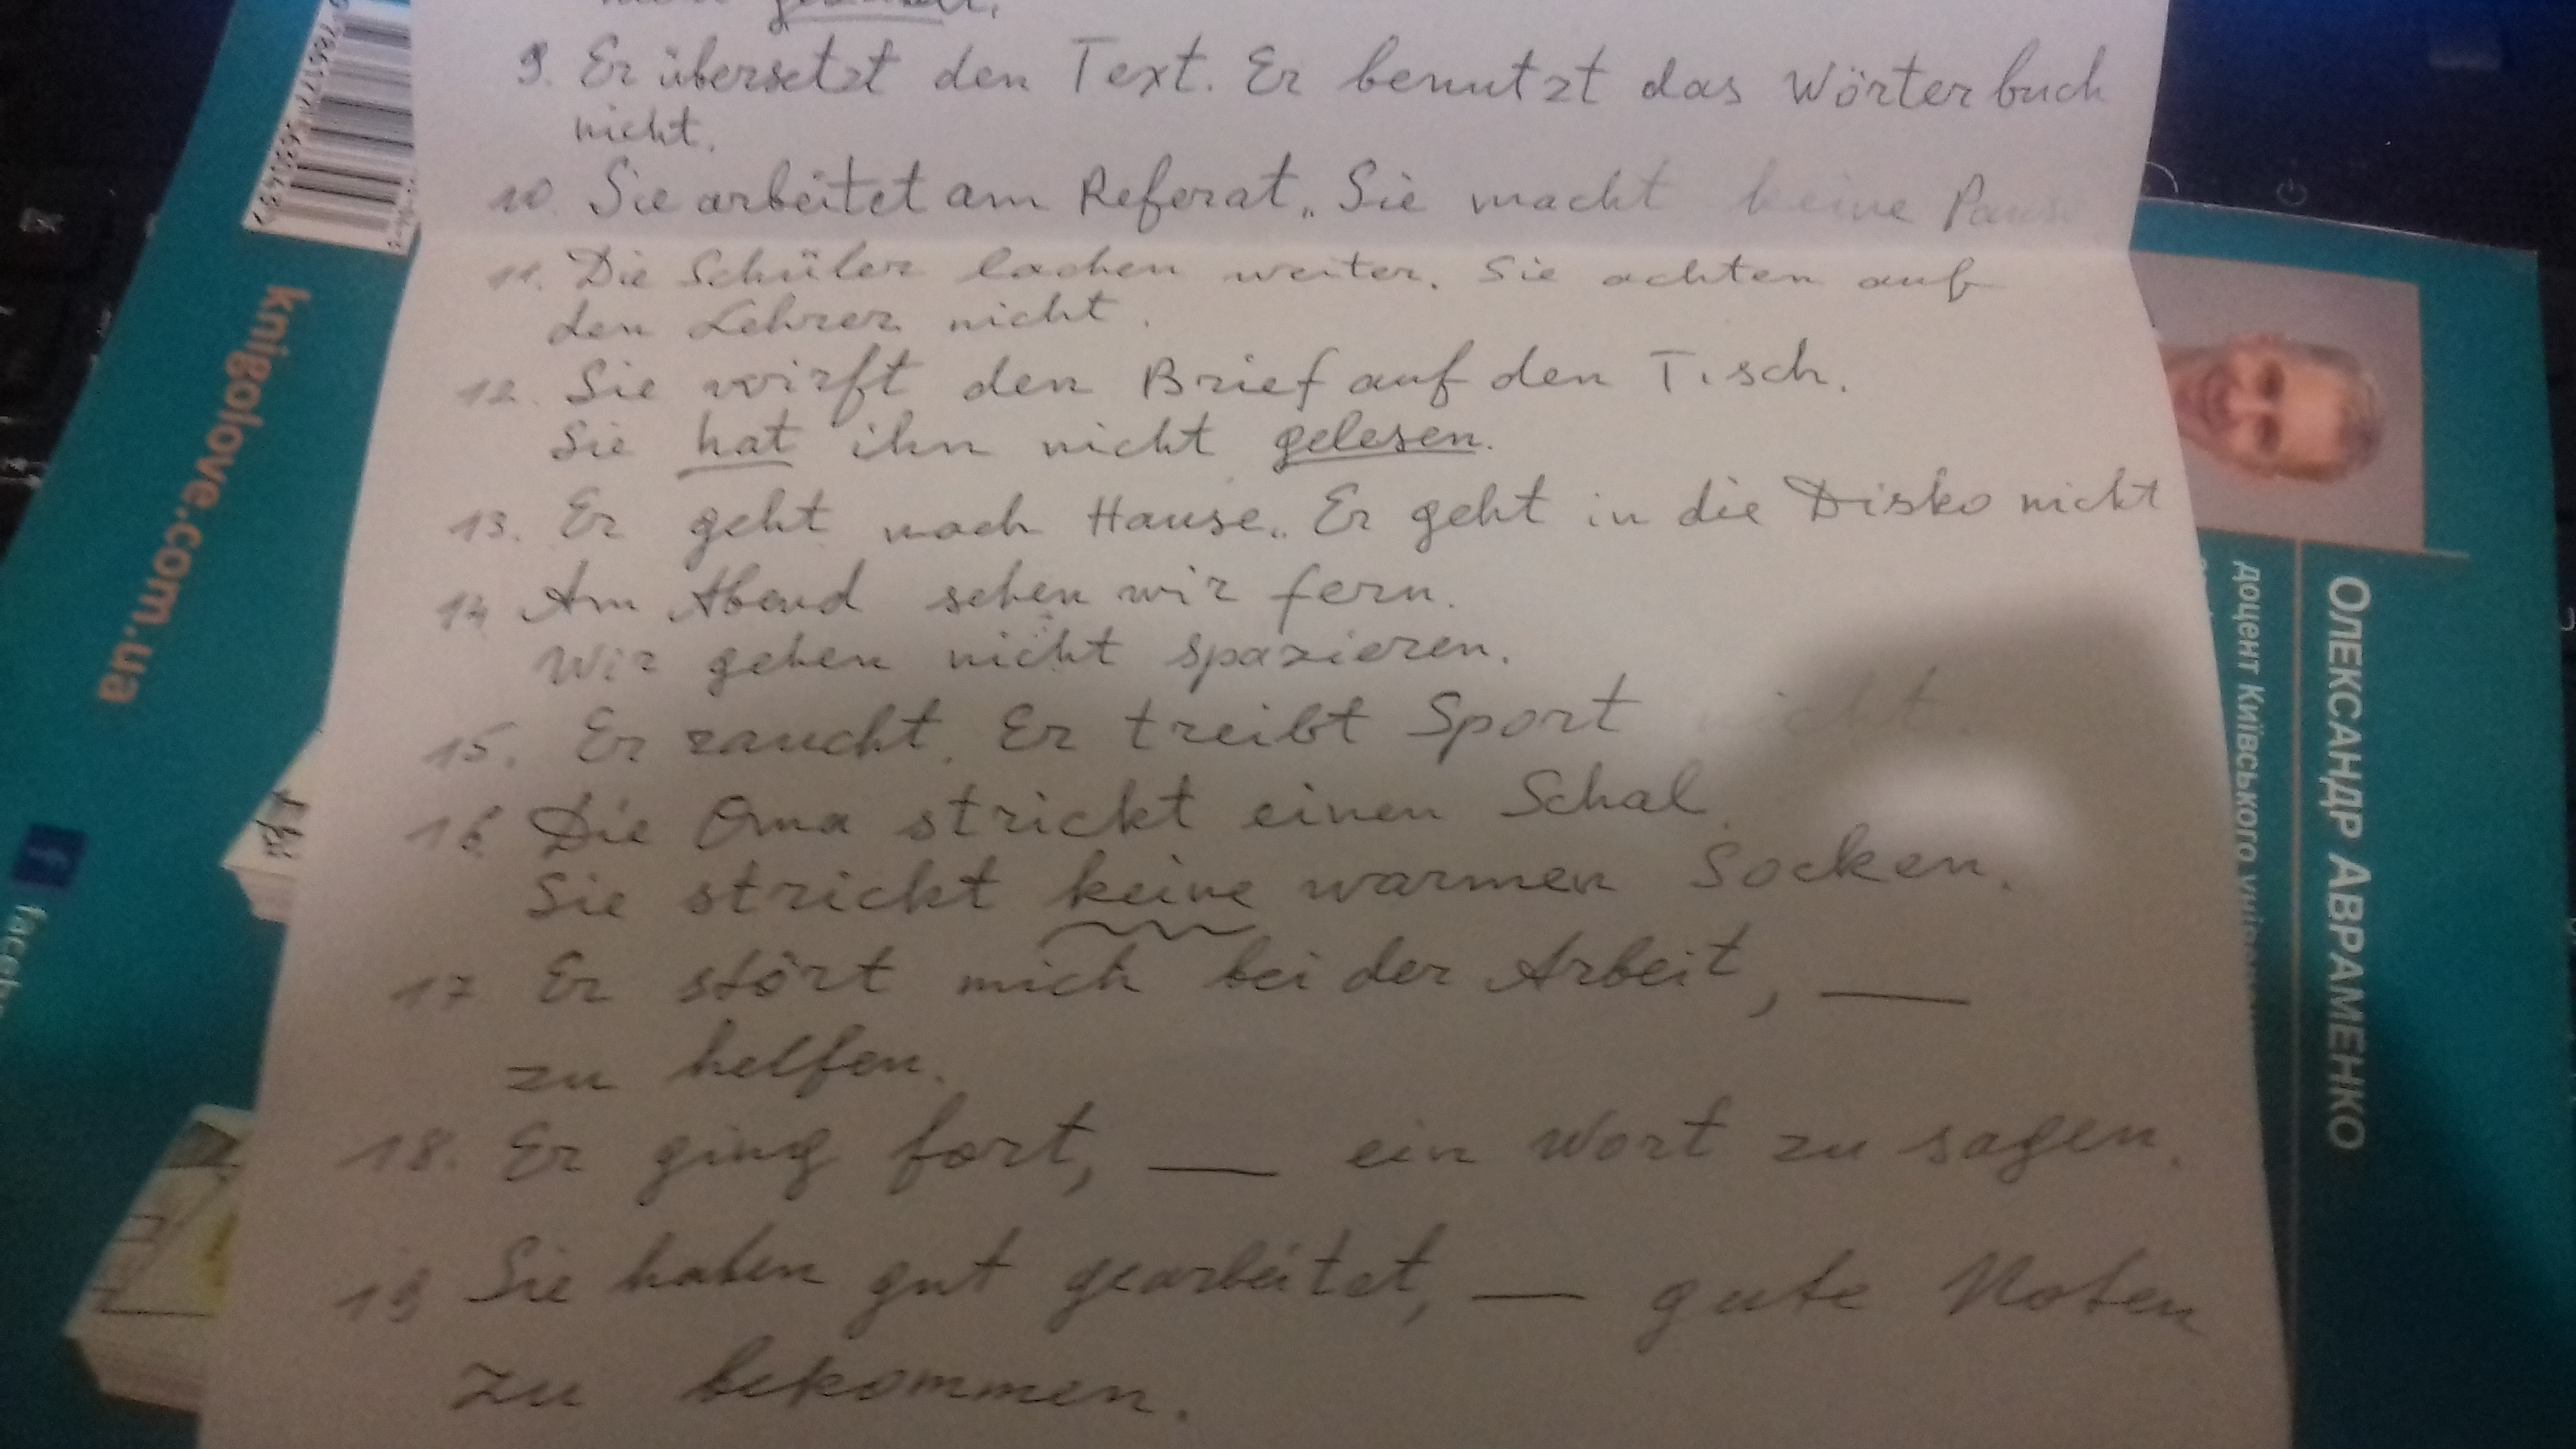 9. Er übersetzt den Text. Er benutzt das Wörterbuch
nicht.
10. Sie arbeitet am Referat. Sie macht keine Pause
11. Die Schüler lachen weiter. Sie achten auf
den Lehrer nicht.
12. Sie wirft den Brief auf den Tisch.
Sie hat ihn nicht gelesen.
13. Er geht nach Hause. Er geht in die Disko nicht
14 Am Abend sehen wir fern.
Wir gehen nicht spazieren.
15. Er raucht. Er treibt Sport nicht.
16 Die Oma strickt einen Schal.
Sie strickt keine warmen Socken.
17 Er stört mich bei der Arbeit, ___
zu helfen.
18. Er ging fort, ___ ein Wort zu sagen.
19 Sie haben gut gearbeitet, ___ gute Noten
zu bekommen.
knigolove.com.ua
ОЛЕКСАНДР АВРАМЕНКО
доцент Київського